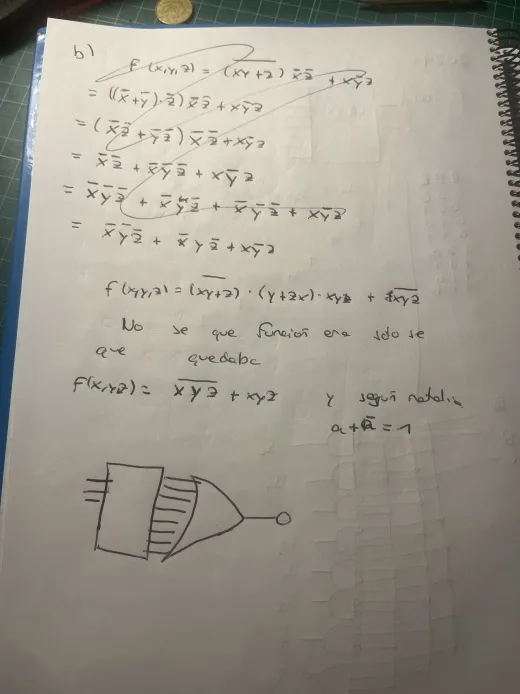 b)
f(x,y,z) = (\overline{xy+z}) x̄z̄ + xȳz
= ((x̄+ȳ)·z̄) x̄z̄ + xȳz
= (x̄z̄ + ȳz̄) x̄z̄ + xȳz
= x̄z̄ + x̄ȳz̄ + xȳz
= x̄ȳz̄ + x̄yz̄ + x̄ȳz̄ + xȳz
= x̄ȳz̄ + x̄yz̄ + xȳz
f(x,y,z) = (\overline{xy+z}) · (y+zx) · xyz + \overline{xyz}
No se que funcion era solo se
que quedaba
f(x,yz) = \overline{xyz} + xyz y según natalia
a+ā = 1